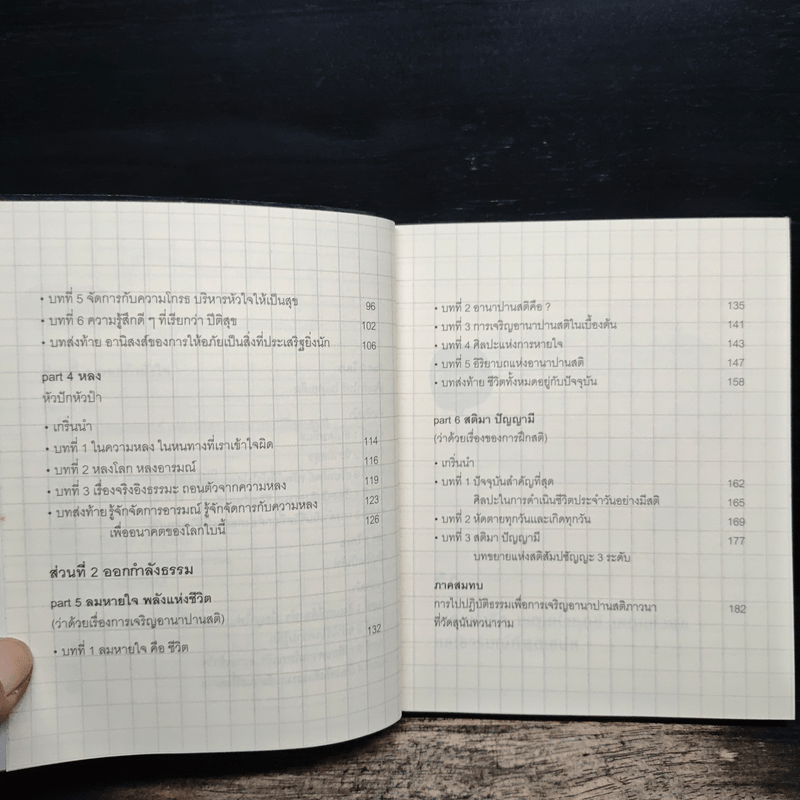 • บทที่ 5 จัดการกับความโกรธ บริหารหัวใจให้เป็นสุข 96
• บทที่ 6 ความรู้สึกดี ๆ ที่เรียกว่า ปีติสุข 102
• บทส่งท้าย อานิสงส์ของการให้อภัยเป็นสิ่งที่ประเสริฐยิ่งนัก 106
part 4 หลง
หัวปักหัวปำ
• เกริ่นนำ 114
• บทที่ 1 ในความหลง ในหนทางที่เราเข้าใจผิด 116
• บทที่ 2 หลงโลก หลงอารมณ์ 119
• บทที่ 3 เรื่องจริงอิงธรรมะ ถอนตัวจากความหลง 123
• บทส่งท้าย รู้จักจัดการอารมณ์ รู้จักจัดการกับความหลง 126
เพื่ออนาคตของโลกใบนี้
ส่วนที่ 2 ออกกำลังธรรม
part 5 ลมหายใจ พลังแห่งชีวิต
(ว่าด้วยเรื่องการเจริญอานาปานสติ)
• บทที่ 1 ลมหายใจ คือ ชีวิต 132
• บทที่ 2 อานาปานสติคือ ? 135
• บทที่ 3 การเจริญอานาปานสติในเบื้องต้น 141
• บทที่ 4 ศิลปะแห่งการหายใจ 143
• บทที่ 5 อิริยาบถแห่งอานาปานสติ 147
• บทส่งท้าย ชีวิตทั้งหมดอยู่กับปัจจุบัน 158
part 6 สติมา ปัญญามี
(ว่าด้วยเรื่องของการฝึกสติ)
• เกริ่นนำ 162
• บทที่ 1 ปัจจุบันสำคัญที่สุด 165
ศิลปะในการดำเนินชีวิตประจำวันอย่างมีสติ
• บทที่ 2 หัดตายทุกวันและเกิดทุกวัน 169
• บทที่ 3 สติมา ปัญญามี 177
บทขยายแห่งสติสัมปชัญญะ 3 ระดับ
ภาคสมทบ
การไปปฏิบัติธรรมเพื่อการเจริญอานาปานสติภาวนา 182
ที่วัดสุนันทวนาราม